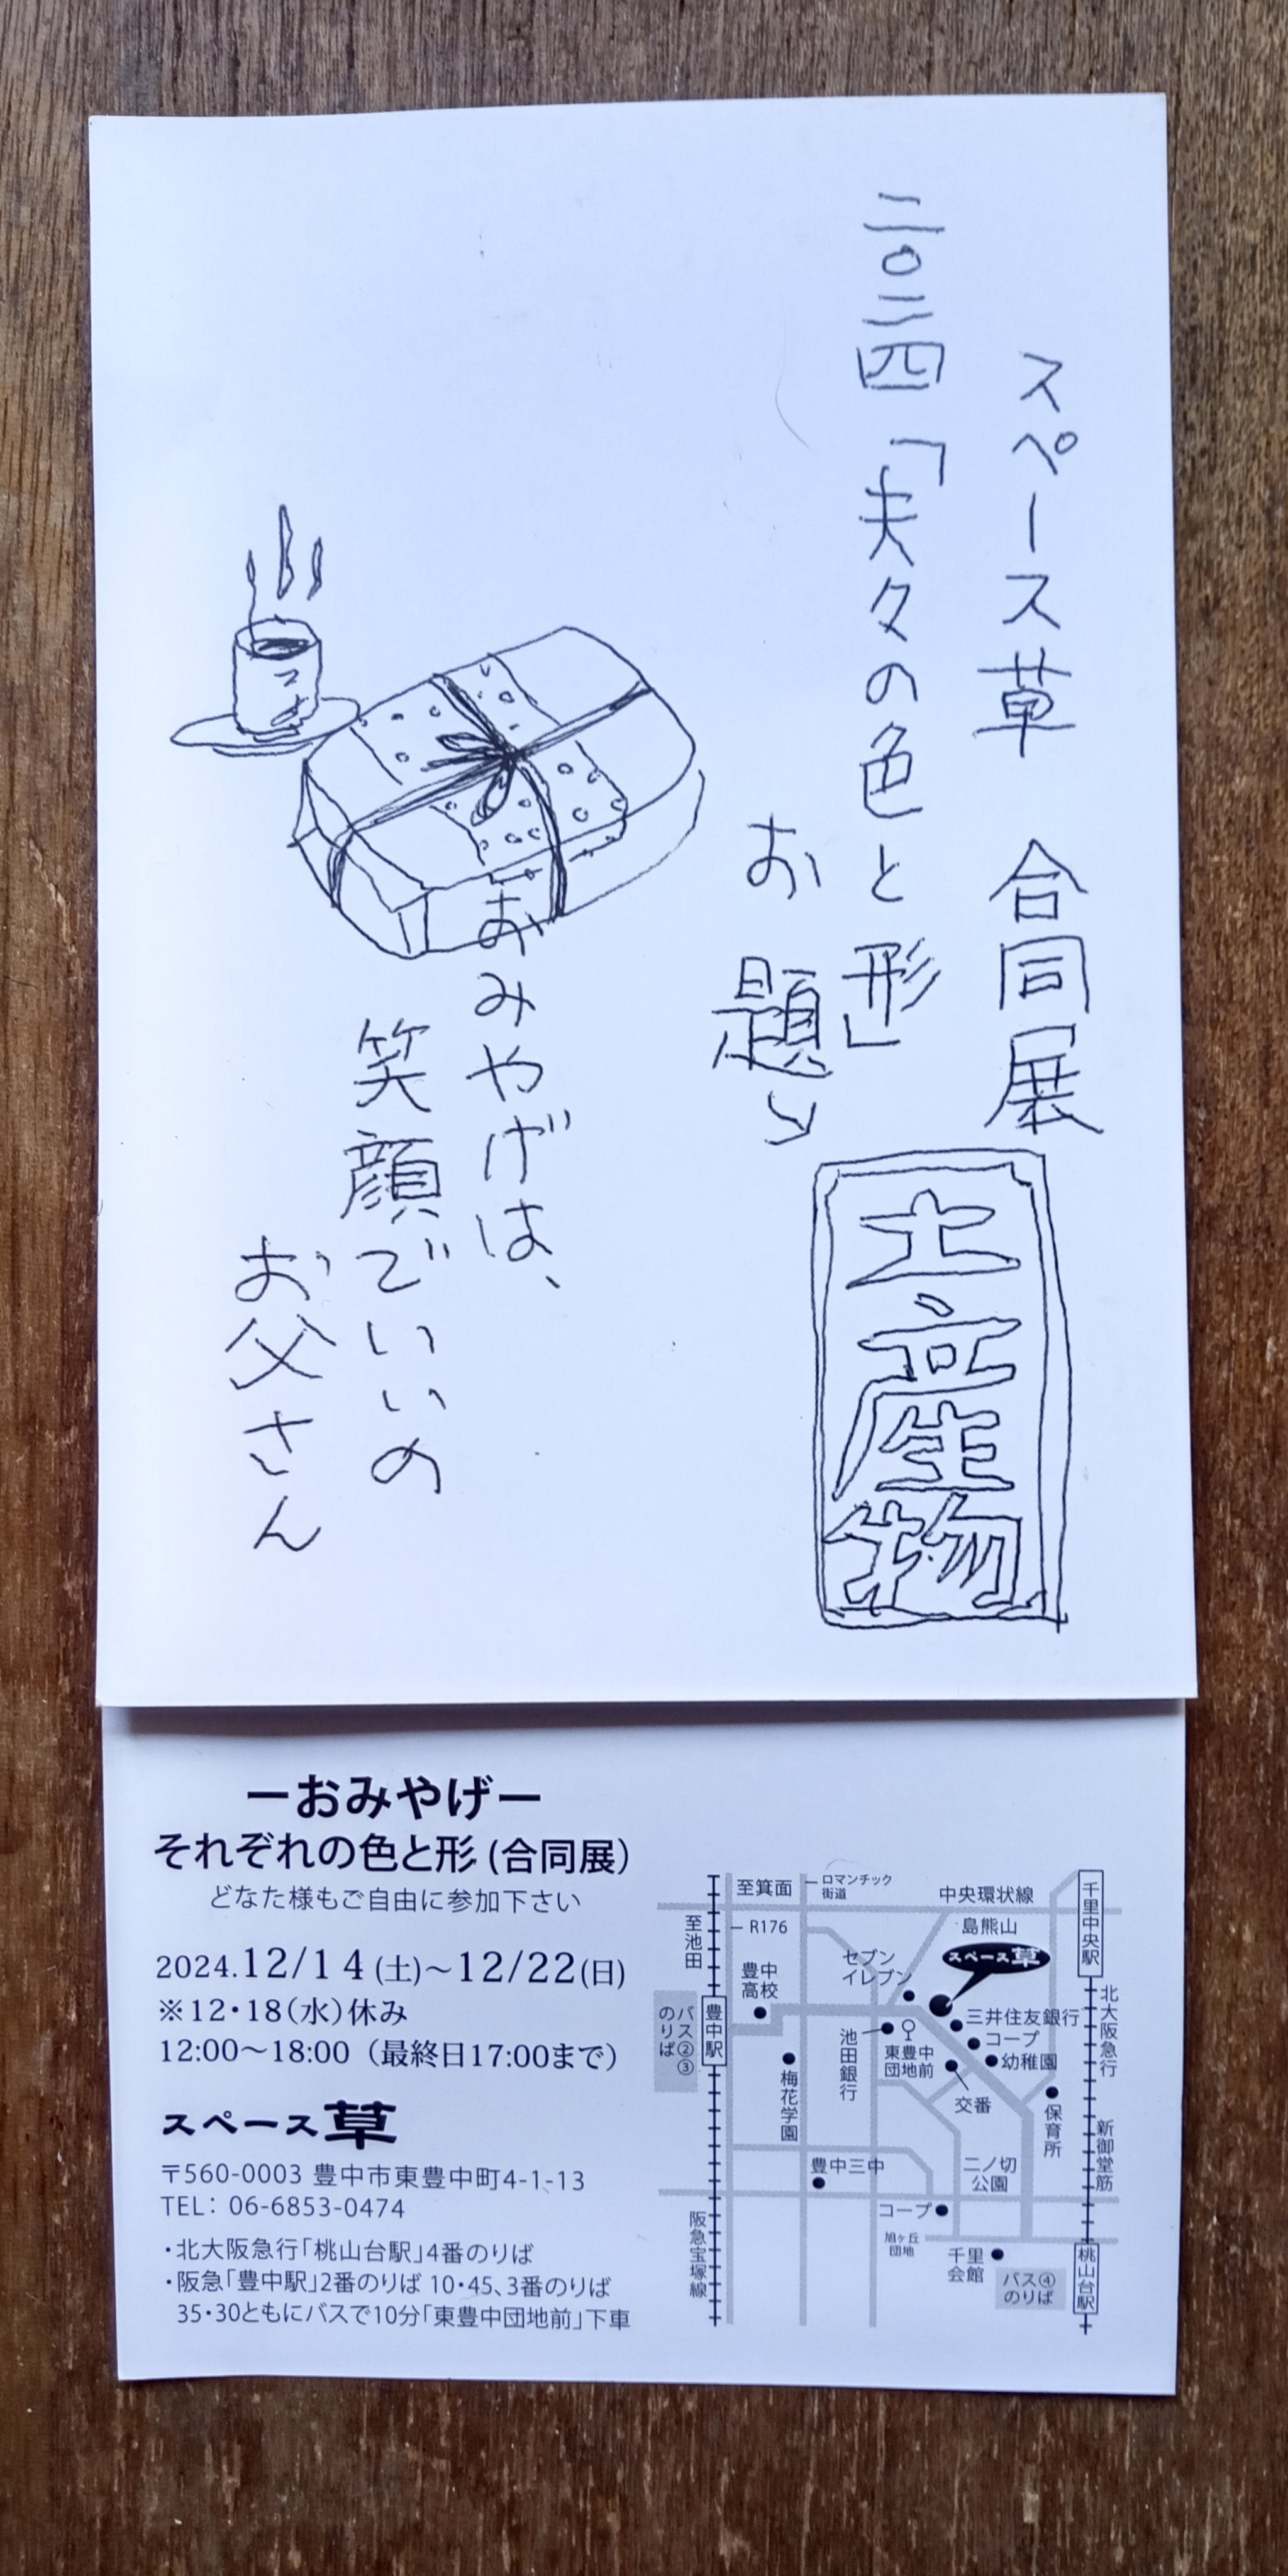 スペース草 合同展
二〇二四「夫々の色と形」
お題↘
土産物
おみやげは、
笑顔でいいの
お父さん
ーおみやげー
それぞれの色と形(合同展)
どなた様もご自由に参加下さい
2024.12/14(土)〜12/22(日)
※12・18(水)休み
12:00〜18:00（最終日17:00まで）
スペース草
〒560-0003 豊中市東豊中町4-1-13
TEL: 06-6853-0474
・北大阪急行「桃山台駅」4番のりば
・阪急「豊中駅」2番のりば 10・45、3番のりば
35・30ともにバスで10分「東豊中団地前」下車
至箕面
ロマンチック
街道
中央環状線
千里中央駅
至池田
R176
島熊山
スペース草
セブン
イレブン
豊中
高校
北大阪急行
バス②③
のりば
豊中駅
三井住友銀行
コープ
幼稚園
池田銀行
東豊中
団地前
梅花学園
交番
保育所
新御堂筋
豊中三中
二ノ切
公園
コープ
阪急宝塚線
旭ヶ丘
団地
千里
会館
バス④
のりば
桃山台駅